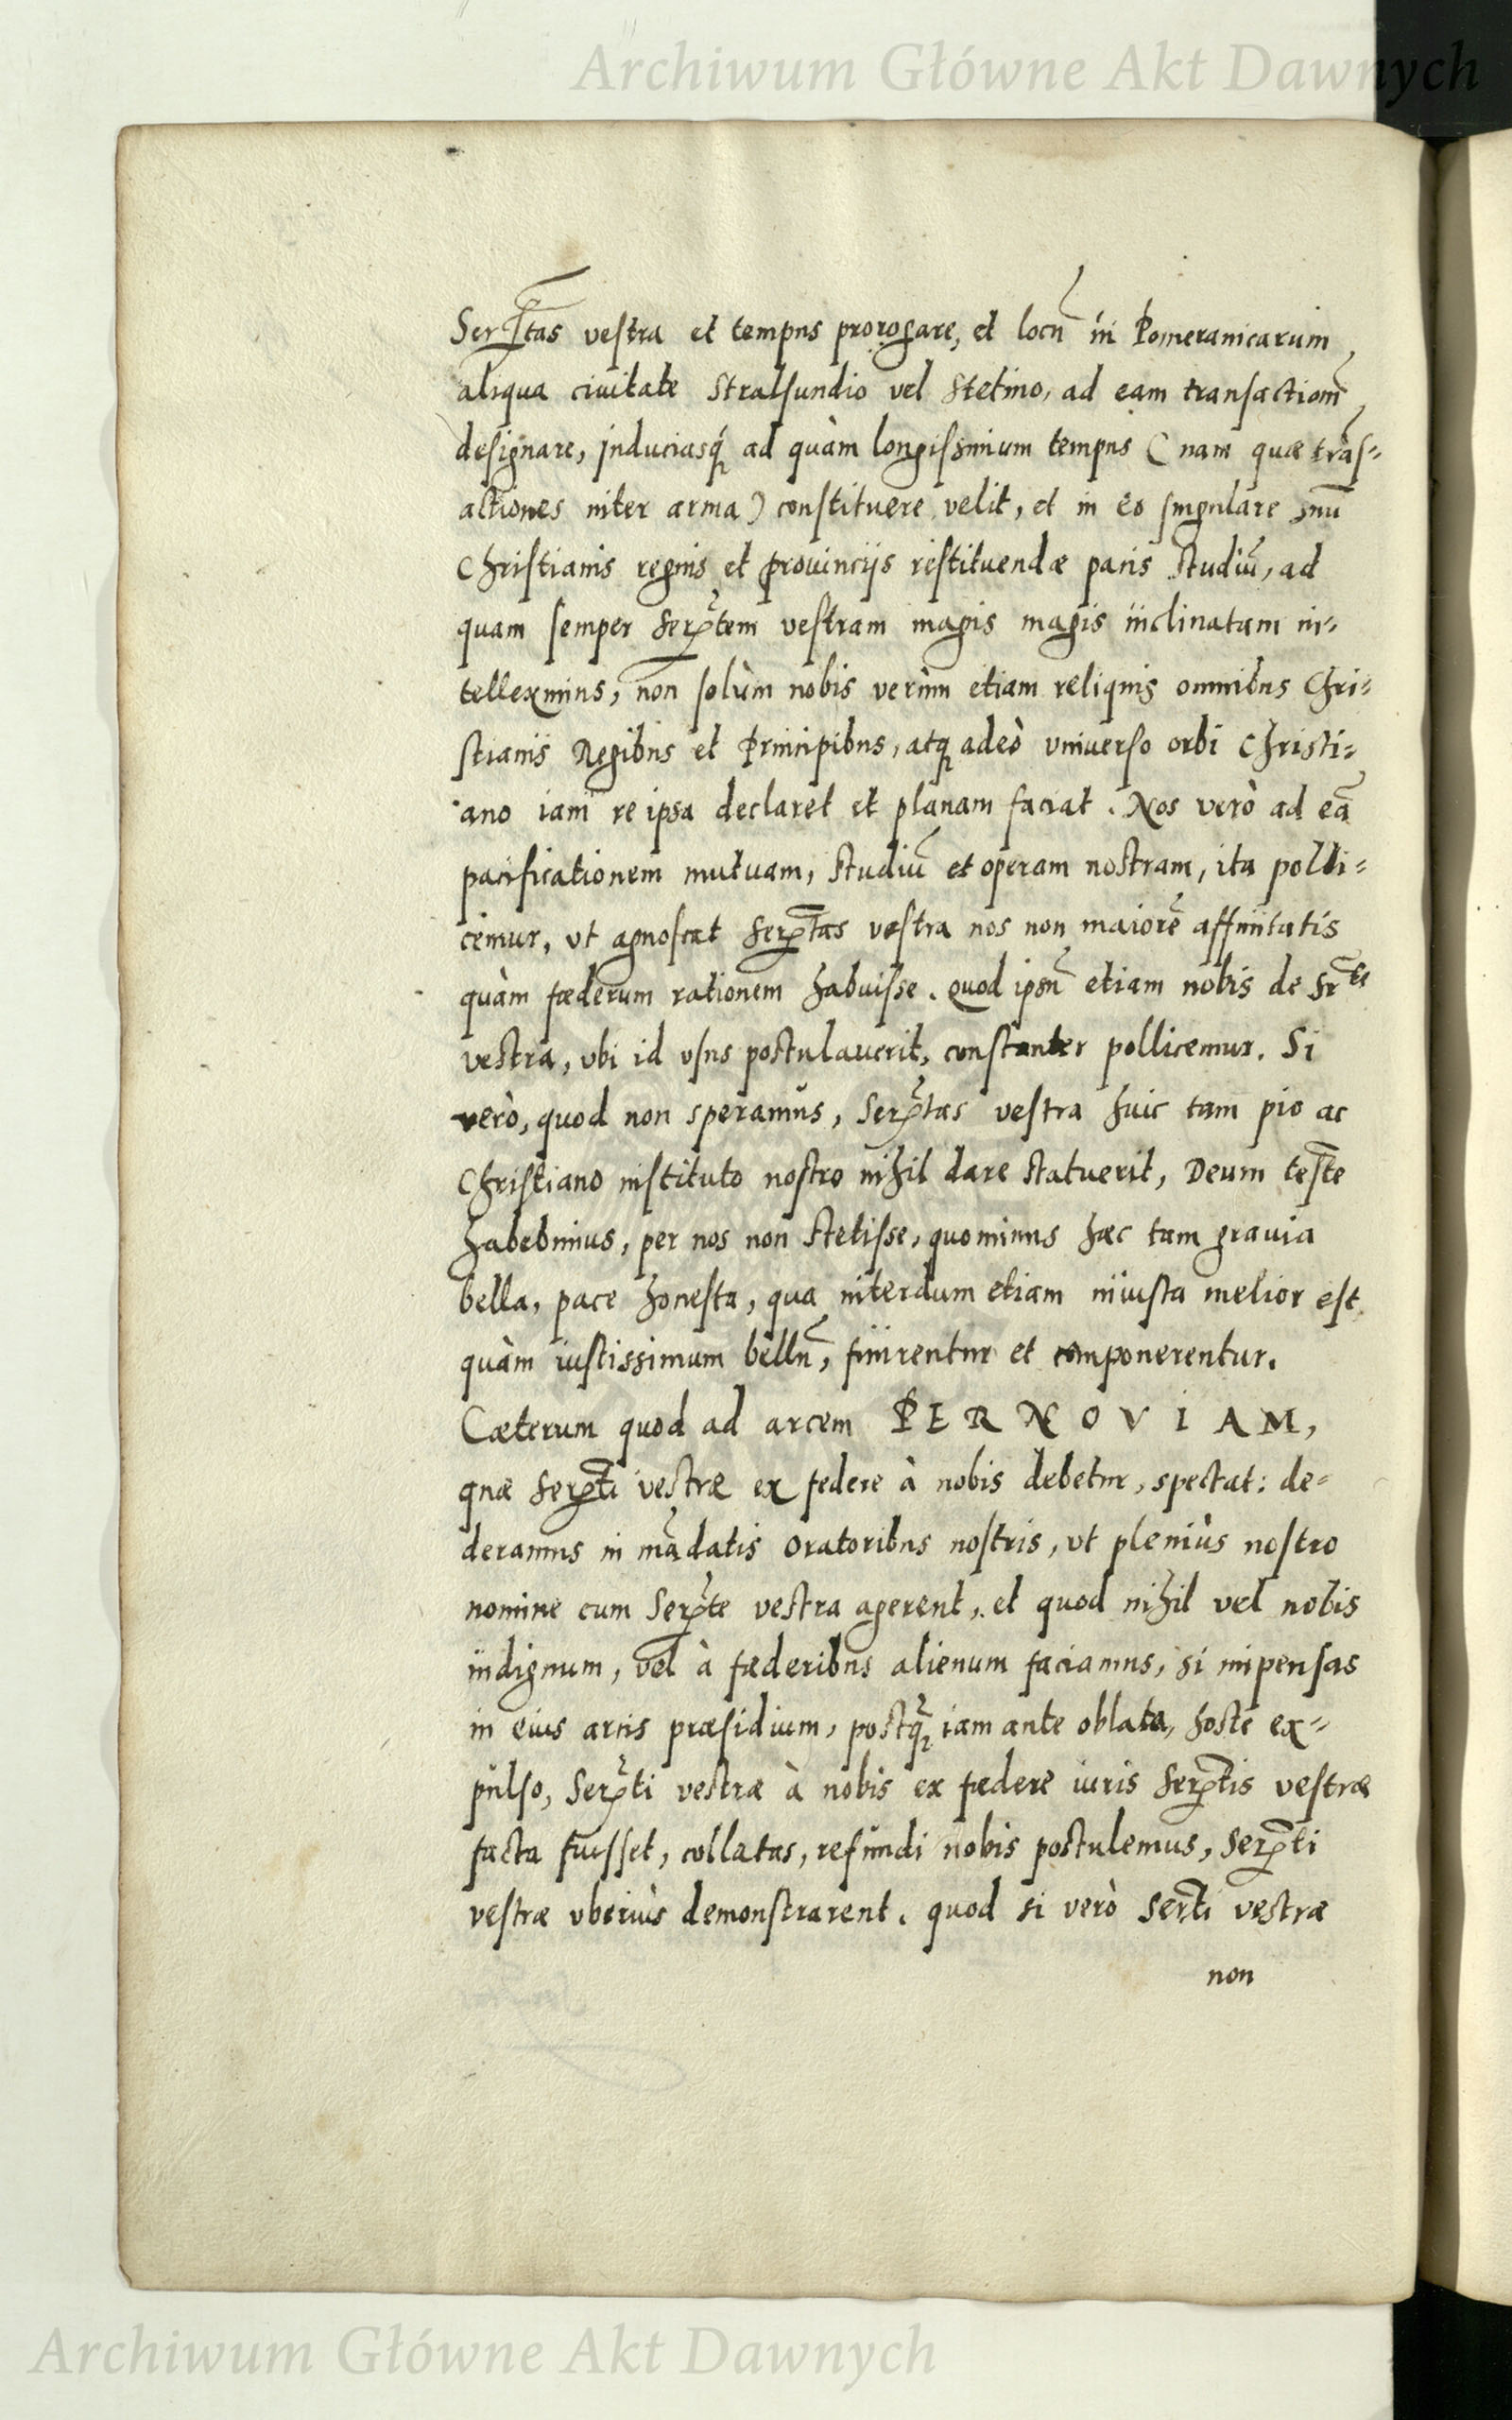 Archiwum Główne Akt Dawnych
Ser̃tas vestra et tempus prorogare, et locũ in Pomeranicarum
aliqua ciuitate Stralsundio vel Stetino, ad eam transactionẽ
designare, induciasq́ꝫ ad quàm longissimum tempus ( nam quæ trãs-
actiones inter arma ) constituere velit, et in eo singulare suũ
Christianis regnis et prouincijs restituendæ pacis studiũ, ad
quam semper Serꝑ̃tem vestram magis magis inclinatam in-
telleximus, non solùm nobis verùm etiam reliquis omnibus Chri-
stianis Regibus et Principibus, atqꝫ adeò vniuerso orbi Christi-
ano iam re ipsa declaret et planam faciat. Nos verò ad eã
pacificationem mutuam, studiũ et operam nostram, ita polli-
cemur, vt agnoscat Serꝑ̃tas vestra nos non maiorẽ affinitatis
quàm fœderum rationem habuisse. Quod ipsũ etiam nobis de Sr̃te
vestra, vbi id vsus postulauerit, constanter pollicemur. Si
verò, quod non speramus, Serꝑ̃tas vestra huic tam pio ac
Christiano instituto nostro nihil dare statuerit, Deum testẽ
habebimus, per nos non stetisse, quominus hæc tam grauia
bella, pace honesta, qua interdum etiam iniusta melior est
quàm iustissimum bellũ, finirentur et componerentur.
Cæterum quod ad arcem PERNOVIAM,
quæ Serꝑ̃ti vestræ ex federe à nobis debetur, spectat: de-
deramus in mãdatis Oratoribus nostris, vt pleniùs nostro
nomine cum Serꝑ̃te vestra agerent, et quod nihil vel nobis
indignum, vel à fœderibus alienum faciamus, si impensas
in eius arcis præsidium, postq̃ꝫ iam ante oblata, hoste ex-
pulso, Serꝑ̃ti vestræ à nobis ex fœdere iuris Serꝑ̃tis vestræ
facta fuisset, collatas, refundi nobis postulemus, Serꝑ̃ti
vestræ vberiùs demonstrarent. quod si verò Ser̃ti vestræ
non
Archiwum Główne Akt Dawnych